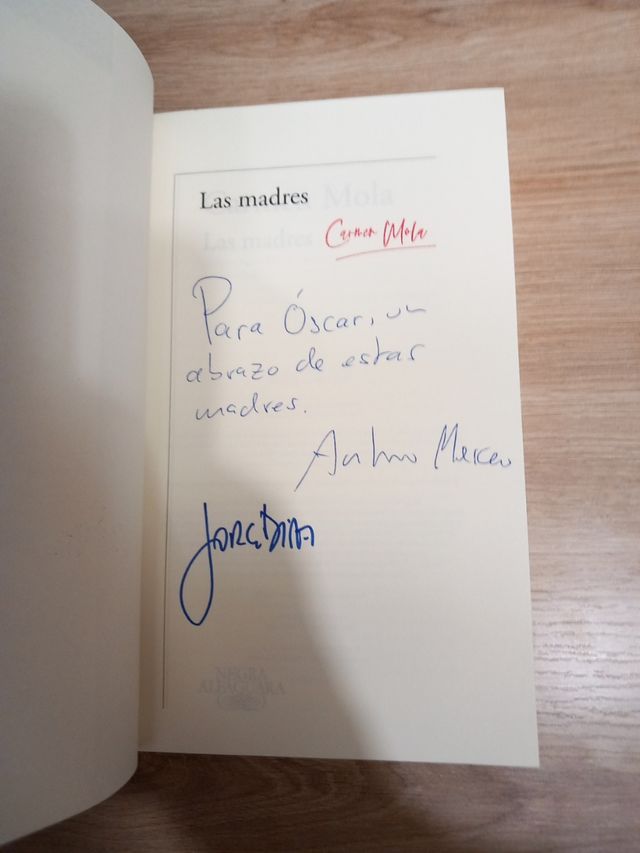 Las madres
Carmen Mola
Mola
Las madres
Para Óscar, un
abrazo de estas
madres.
Antonio Mercero
JORGE DÍAZ
NEGRA
ALFAGUARA